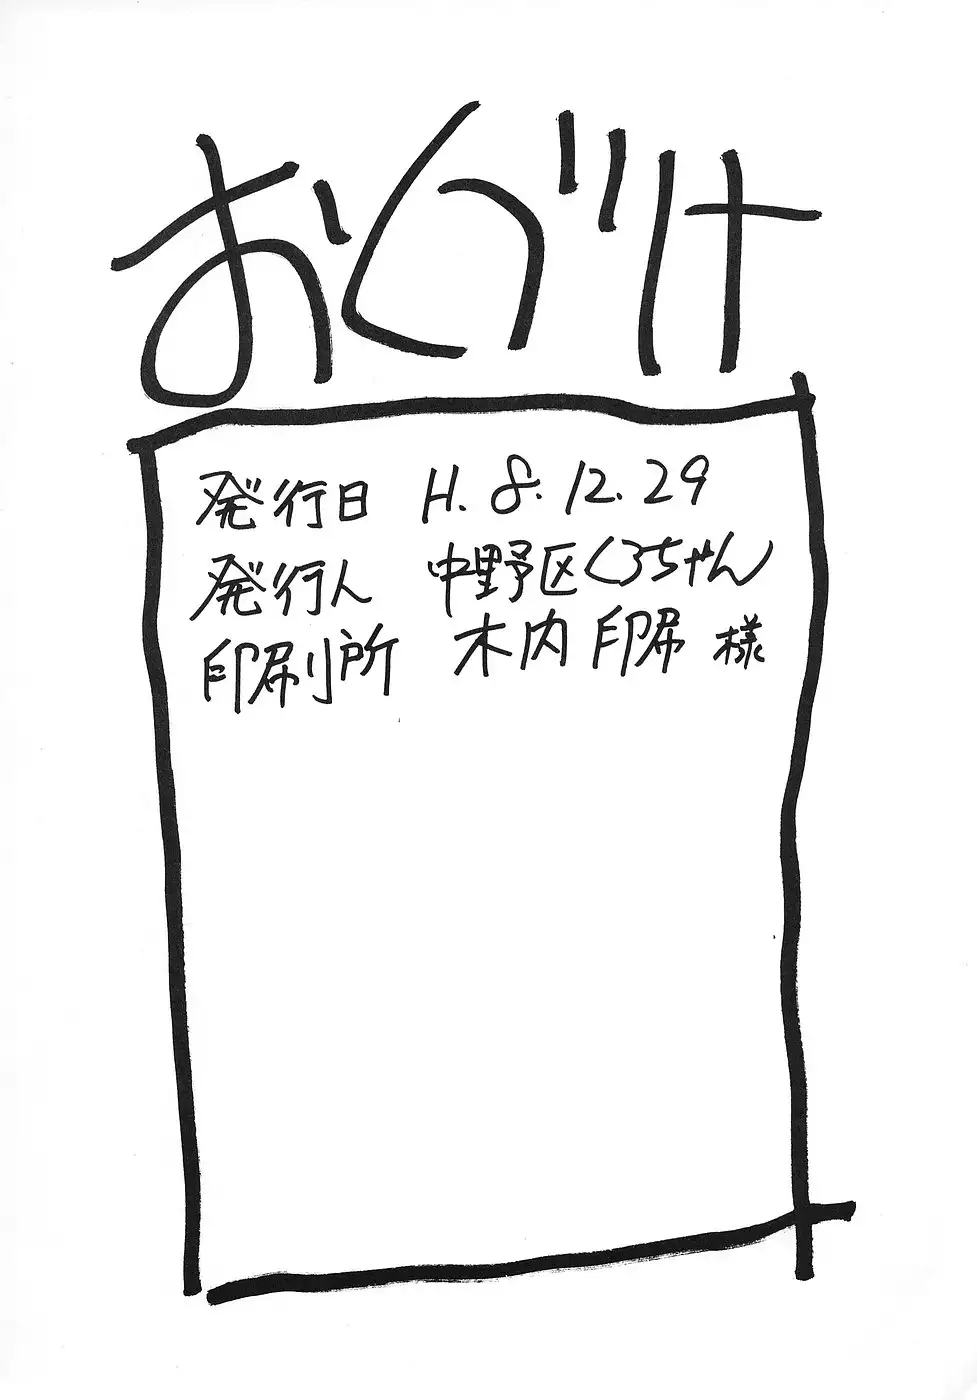 おくづけ
発行日 H.8.12.29
発行人 中野区くろちゃん
印刷所 木内印刷様